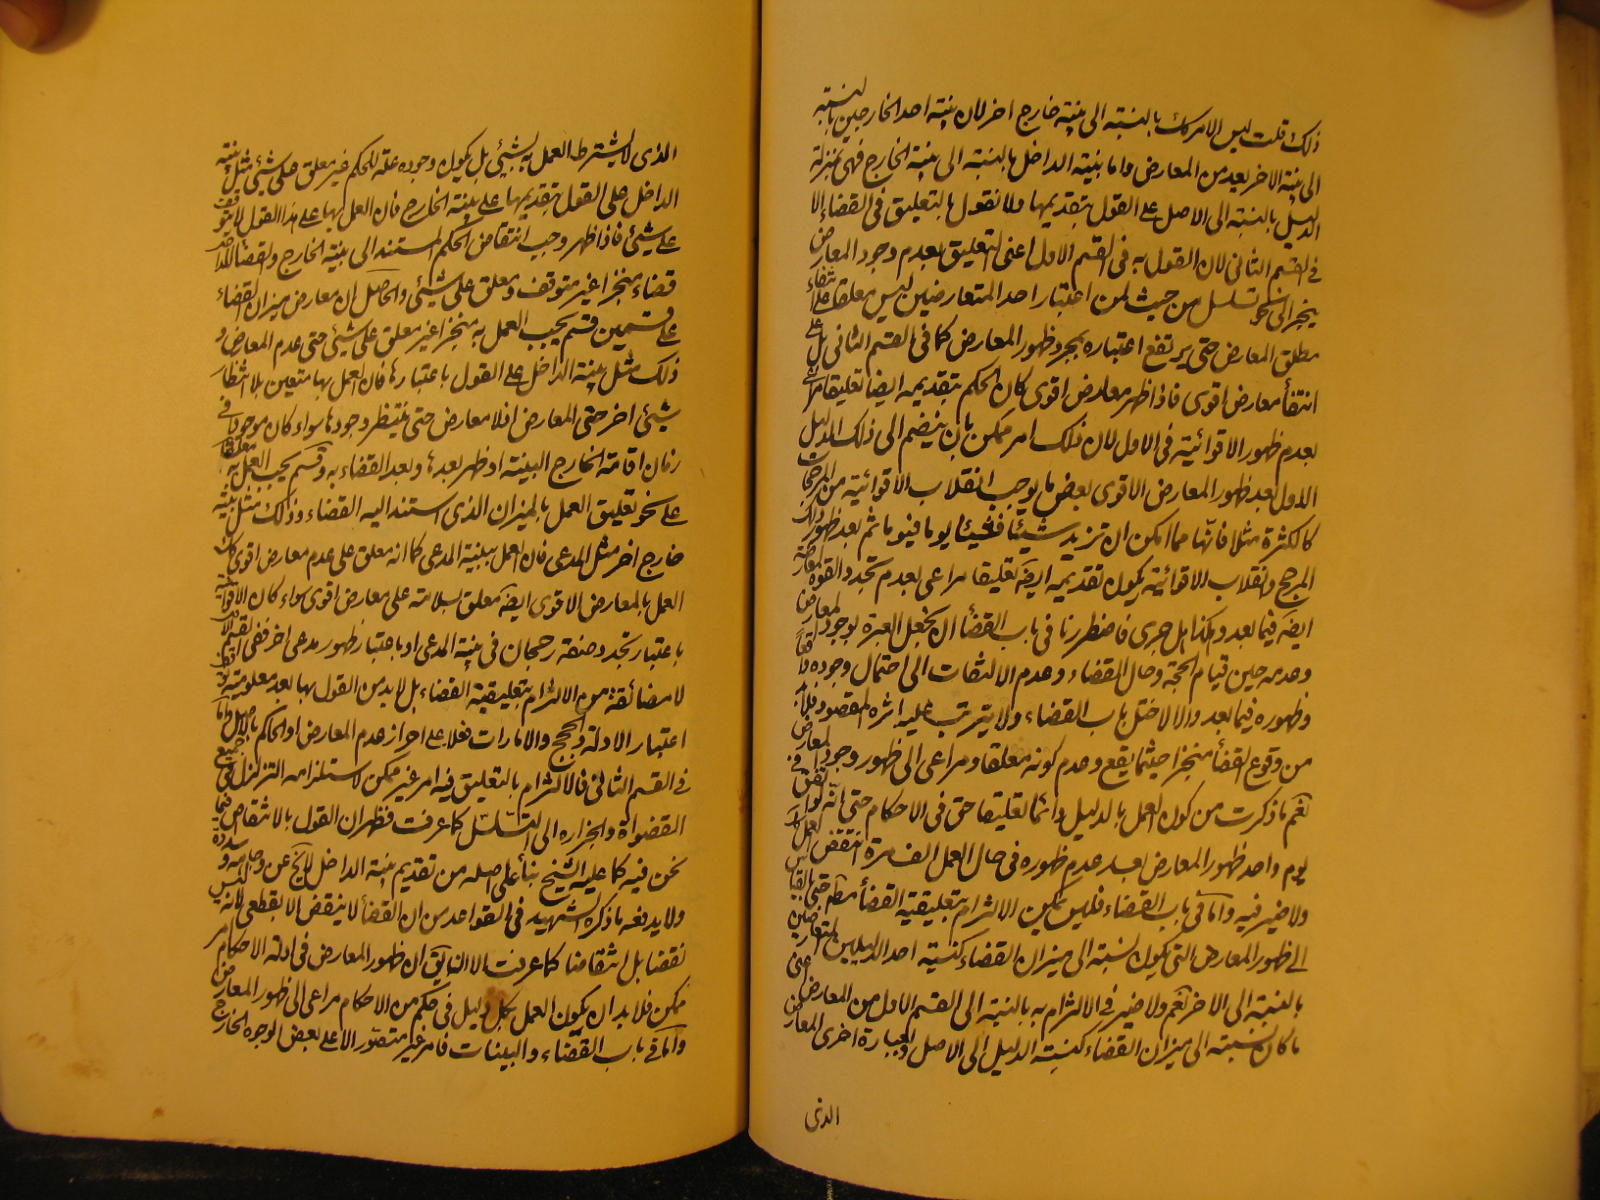 ذلك قلت ليس الامر كك بالنسبة الى بينة خارج اخر لان بينة احد الخارجين بالنسبة
الى بينة الاخر يعد من المعارض واما بينة الداخل بالنسبة الى بينة الخارج فهى بمنزلة
الدليل بالنسبة الى الاصل على القول بتقديمها ولا نقول بالتعليق فى القضاء الا
فى القسم الثانى لان القول به فى القسم الاول اعنى التعليق بعدم وجود المعارض
ينجر الى تسلسل من حيث لمن اعتبار احد المتعارضين ليس معلقا على انتفاء
مطلق المعارض حتى يرتفع اعتباره بمجرد ظهور المعارض كما فى القسم الثانى بل على
انتفأ معارض اقوى فاذا ظهر معارض اقوى كان الحكم بتقديمه ايضا تعليقا
بعدم ظهور الاقوائية فى الاول لان ذلك امر ممكن بان ينضم الى ذلك الدليل
الاول بعد ظهور المعارض الاقوى بعض ما يوجب انقلاب الاقوائية من المرجحات
كالكثرة مثلا فانها مما امكن ان تزيد شيئا فشيئا يوما فيوما ثم بعد ظهور ذلك
المرجح وانقلاب الاقوائية يكون تقديمه ايضه تعليقا مراعى بعدم تجدد القوة لمعارضه
ايضه فيما بعد وهكذا هل جرى فاضطررنا فى باب القضأ ان نجعل العبرة بوجود المعارض
وعدمه حين قيام الحجة وحال القضاء وعدم الالتفات الى احتمال وجوده
وظهوره فيما بعد والا لاختل باب القضاء ولا يترتب عليه اثره المقصود فلا بد
من وقوع القضأ منجزا حيثما يقع وعدم كونه معلقا ومراعى الى ظهور وجود المعارض
نعم ما ذكرت من كون العمل بالدليل دائما تعليقا حق فى الاحكام حتى انه لو اتفق فى
يوم واحد ظهور المعارض بعد عدم ظهوره فى حال العمل الف مرة انتقض العمل
ولا ضير فيه واما فى باب القضاء فليس يمكن الالتزام بتعليقية القضأ مطم حتى بالقياس
الى ظهور المعارض التى يكون نسبته الى ميزان القضاء كنسبة احد الدليلين المتعارضين
بالنسبة الى الاخر نعم ولا ضير فى الالتزام به بالنسبة الى القسم الاول من المعارض اعنى
ما كان نسبته الى ميزان القضاء كنسبة الدليل الى الاصل وبعبارة اخرى المعارض
الذى
الذى لا يشترط العمل به بشيئ بل يكون وجوده علة للحكم غير معلق على شيئ مثل بينة
الداخل على القول بتقديمها على بينة الخارج فان العمل بها على هذا القول لا يتوقف
على شيئ فاذا ظهر وجب انتقاض الحكم المستند الى بينة الخارج والقضأ للداخل
قضاء منجزا غير متوقف ومعلق على شيئ والحاصل ان معارض ميزان القضاء
على قسمين قسم يجب العمل به منجزا غير معلق على شيئ حتى عدم المعارض و
ذلك مثل بينة الداخل على القول باعتبارها فان العمل بها متعين بلا انتظار
شيئ اخر حتى المعارض اذ لا معارض حتى ينتظر وجودها سواء كان موجودا فى
زمان اقامة الخارج البينة او ظهر بعدها وبعد القضاء به وقسم يجب العمل به معلقا
على نحو تعليق العمل بالميزان الذى استند اليه القضاء وذلك مثل بينة
خارج اخر مثل المدعى فان العمل ببينة المدعى كما انه معلق على عدم معارض اقوى كك
العمل بالمعارض الاقوى ايضه معلق بسلامته على معارض اقوى سواء كان الاقوائية
باعتبار تجدد صفة رجحان فى بينة المدعى او باعتبار ظهور مدعى اخر ففى القسم الاول
لا مضائقة من الالتزام بتعليقية القضاء بل لا بد من القول بها بعد معلومية
اعتبار الادلة والحجج والامارات فعلا على احراز عدم المعارض او الحاكم بالاصل واما
فى القسم الثانى فالالتزام بالتعليق فيه امر غير ممكن لاستلزامه التزلزل فى جميع
القضواة وانجراره الى التسلسل كما عرفت فظهر ان القول بالانتقاض فيما
نحن فيه كما عليه الشيخ بنأ على اصله من تقديم بينة الداخل لا يخ عن وجاهة وسداد
ولا يدفعه ما ذكره الشهيد فى القواعد من ان القضأ لا ينقض الا بقطعى لانه ليس
نقضا بل انتقاضا كما عرفت الا ان اللايق ان ظهور المعارض فى ادلة الاحكام امر
ممكن فلا بد ان يكون العمل بكل دليل فى حكم من الاحكام مراعى الى ظهور المعارض
واما فى باب القضاء والبينات فامر غير متصور الا على بعض الوجوه الخارج